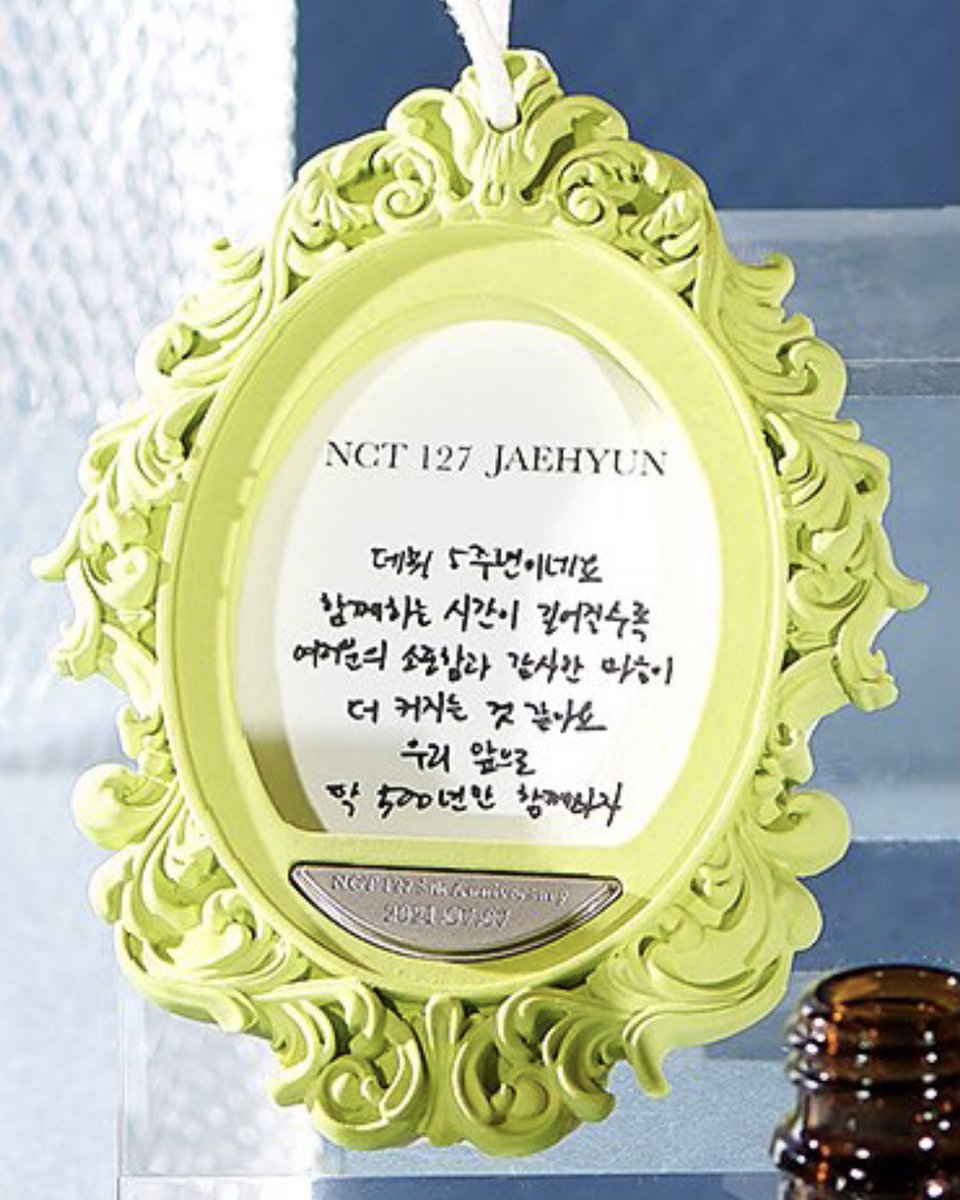 NCT 127 JAEHYUN
데뷔 5주년이네요
함께하는 시간이 길어질수록
여러분의 소중함과 감사한 마음이
더 커지는 것 같아요
우리 앞으로
딱 500년만 함께하자
NCT 127 5th Anniversary
2021.07.07